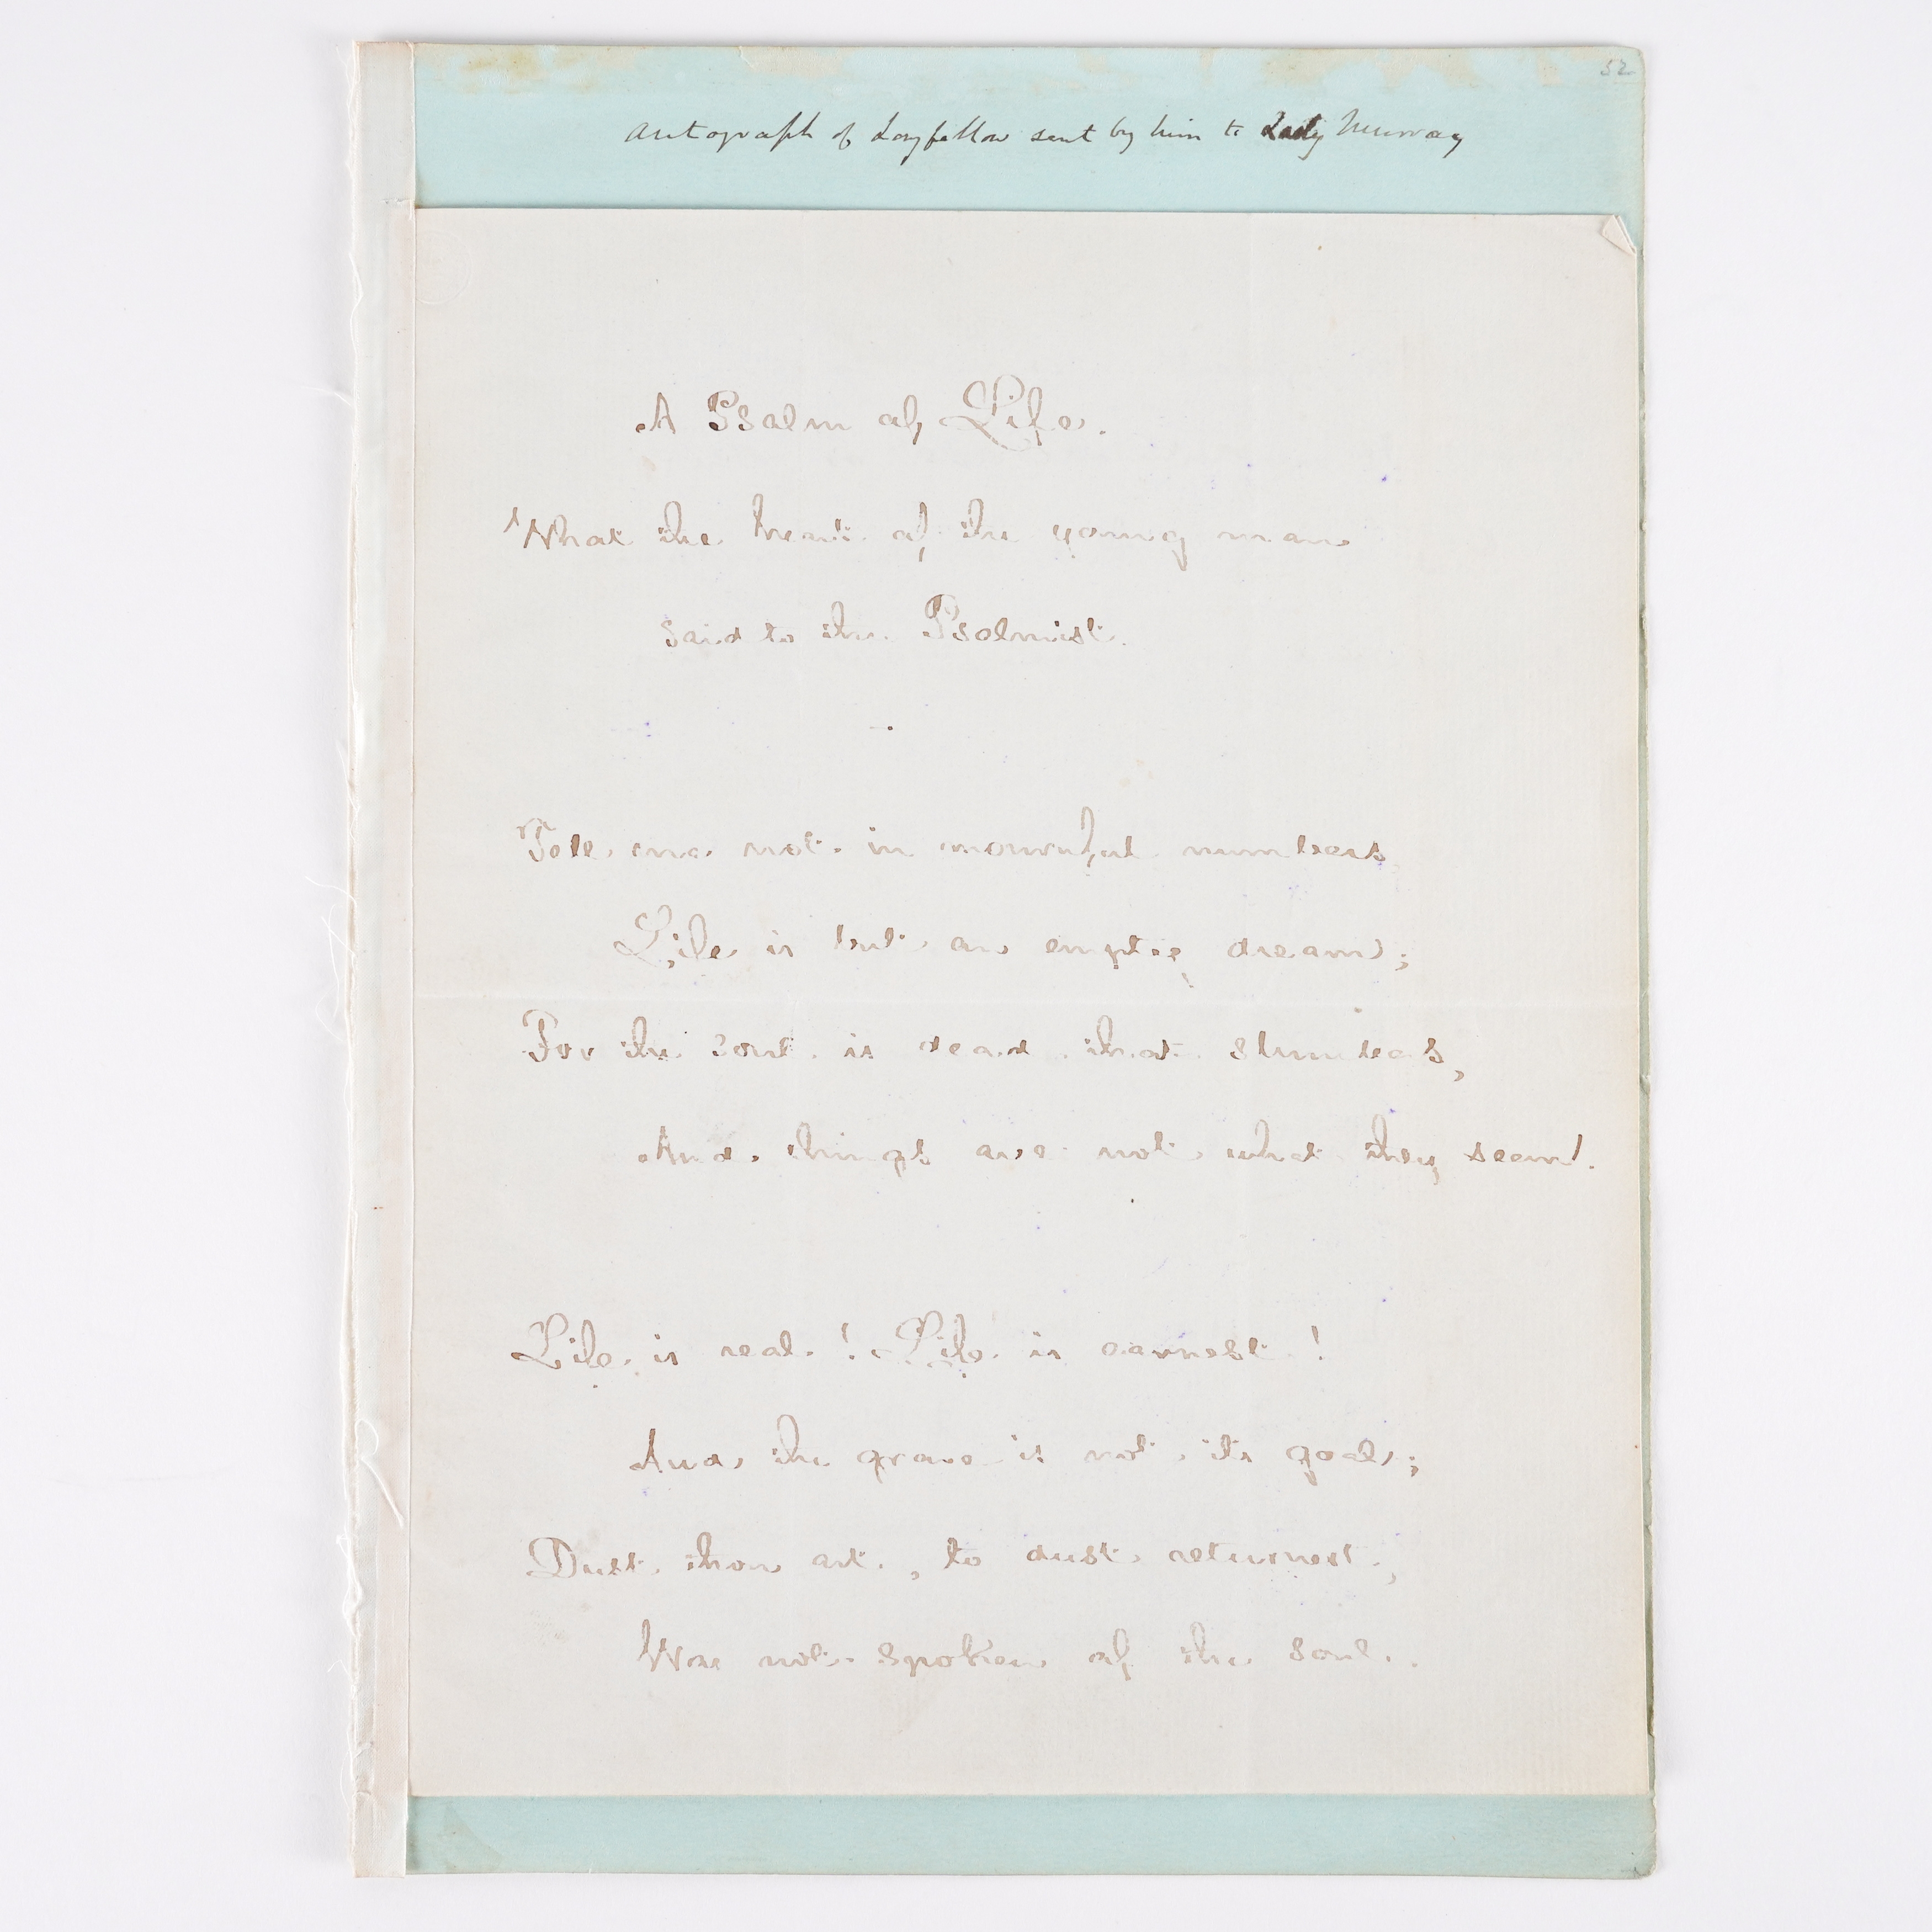 52
Autograph of Longfellow sent by him to Lady Murray
A Psalm of Life.
What the heart of the young man
said to the Psalmist.
Tell me not in mournful numbers
Life is but an empty dream;
For the soul is dead that slumbers,
And things are not what they seem.
Life is real! Life is earnest!
And the grave is not its goal;
Dust thou art, to dust returnest,
Was not spoken of the soul.